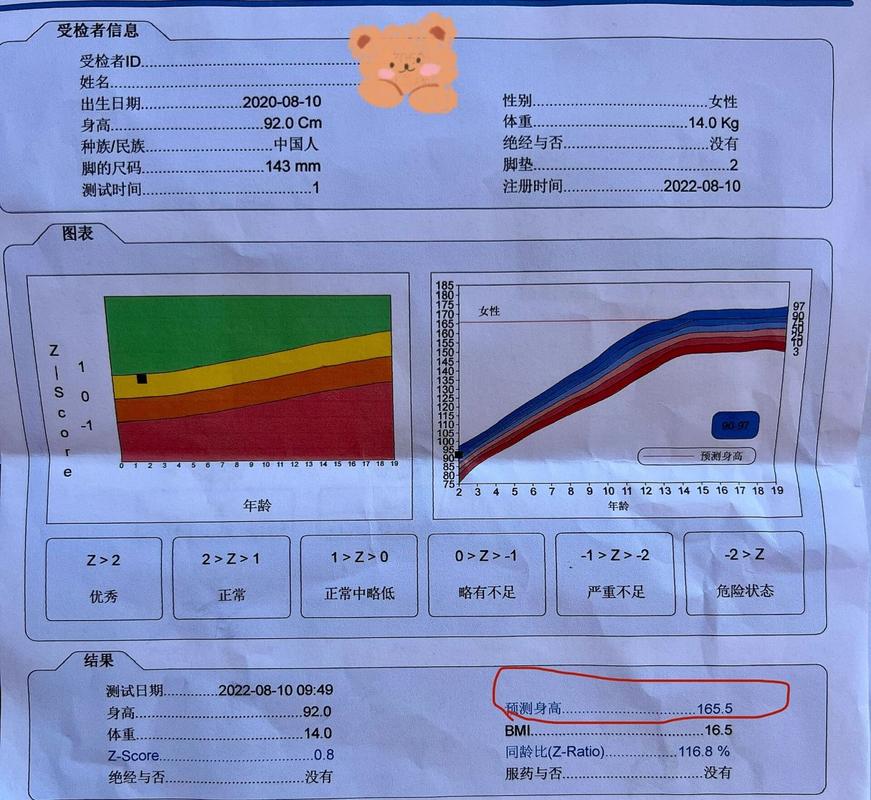 受检者信息
受检者ID
姓名
出生日期 2020-08-10 性别 女性
身高 92.0 Cm 体重 14.0 Kg
种族/民族 中国人 绝经与否 没有
脚的尺码 143 mm 脚垫 2
测试时间 1 注册时间 2022-08-10
图表
Z|Score
1
0
-1
0 1 2 3 4 5 6 7 8 9 10 11 12 13 14 15 16 17 18 19
年龄
185
180
175
170
165
160
155
150
145
140
135
130
125
120
115
110
105
100
95
90
85
80
75
女性
97
90
10
3
90-97
预测身高
2 3 4 5 6 7 8 9 10 11 12 13 14 15 16 17 18 19
年龄
Z > 2 2 > Z > 1 1 > Z > 0 0 > Z > -1 -1 > Z > -2 -2 > Z
优秀 正常 正常中略低 略有不足 严重不足 危险状态
结果
测试日期 2022-08-10 09:49
身高 92.0 预测身高 165.5
体重 14.0 BMI 16.5
Z-Score 0.8 同龄比(Z-Ratio) 116.8 %
绝经与否 没有 服药与否 没有